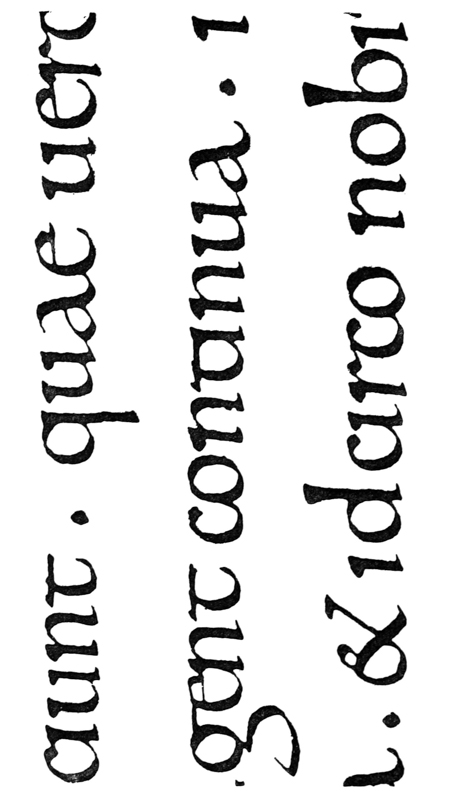 aunt . quae uero
gent continua . i
. & idcirco nobi